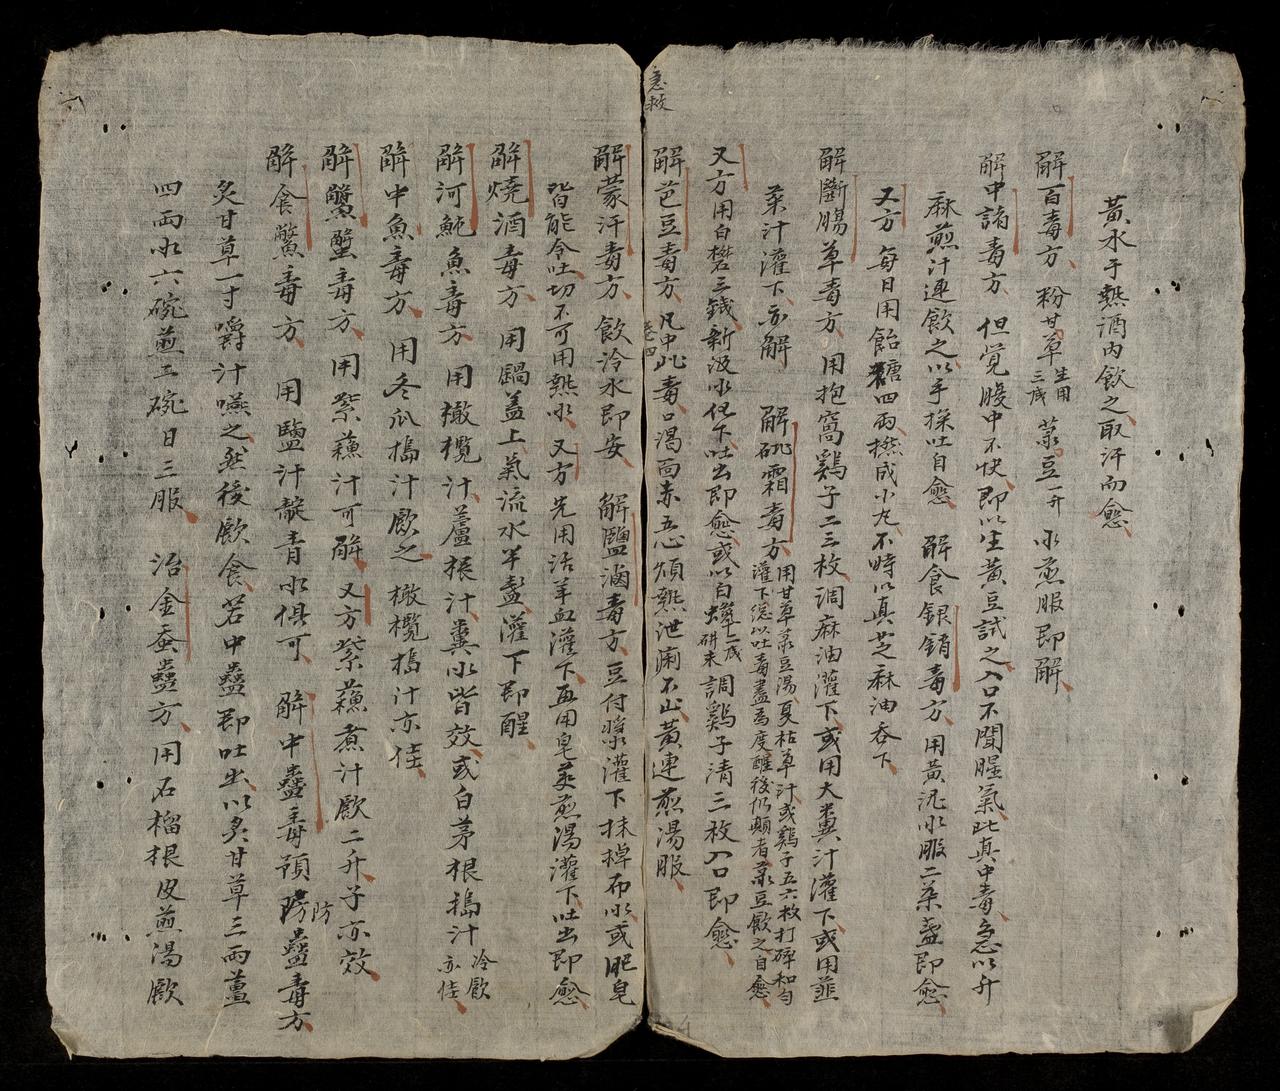 黃水于熱酒內飲之取汗而愈
解百毒方 粉甘草生用三戔 菉豆一升 水煎服即解
解中諸毒方 但覺腹中不快即以生黃豆試之入口不聞腥氣此真中毒急以升
麻煎汁連飲之以手探吐自愈 解食銀銷毒方 用黃泥水服二茶盞即愈
又方 每日用飴糖四兩撚成小丸不時以真芝麻油吞下
解斷腸草毒方 用抱窩鷄子二三枚調麻油灌下或用大糞汁灌下或用韮
菜汁灌下亦解 解砒霜毒方 用甘草菉豆湯夏枯草汁或鷄子五六枚打碎和勻灌下總以吐毒盡為度醒後仍顛者菉豆飲之自愈
又方用白礬三錢新汲水化下吐出即愈或以白蠟二戔研末調鷄子清三枚入口即愈
解芭豆毒方 凡中此毒口渴面赤五心煩熱泄痢不止黃連煎湯服
急救
卷四
解蒙汗毒方 飲冷水即安 解鹽滷毒方 豆付漿灌下抹棹布水或肥皂
皆能令吐切不可用熱水 又方 先用活羊血灌下再用皂莢煎湯灌下吐出即愈
解燒酒毒方 用鍋蓋上氣流水半盞灌下即醒
解河魨魚毒方 用橄欖汁蘆根汁糞水皆效或白茅根搗汁冷飲亦佳
解中魚毒方 用冬瓜搗汁飲之 橄欖搗汁亦佳
解蟹毒方 用紫蘓汁可解 又方紫蘓煮汁飲二升子亦效
解食鱉毒方 用鹽汁靛青水俱可 解中蠱毒預防防蠱毒方
炙甘草一寸嚼汁嚥之然後飲食若中蠱即吐出以炙甘草三兩薑
四兩水六碗煎三碗日三服 治金蚕蠱方 用石榴根皮煎湯飲